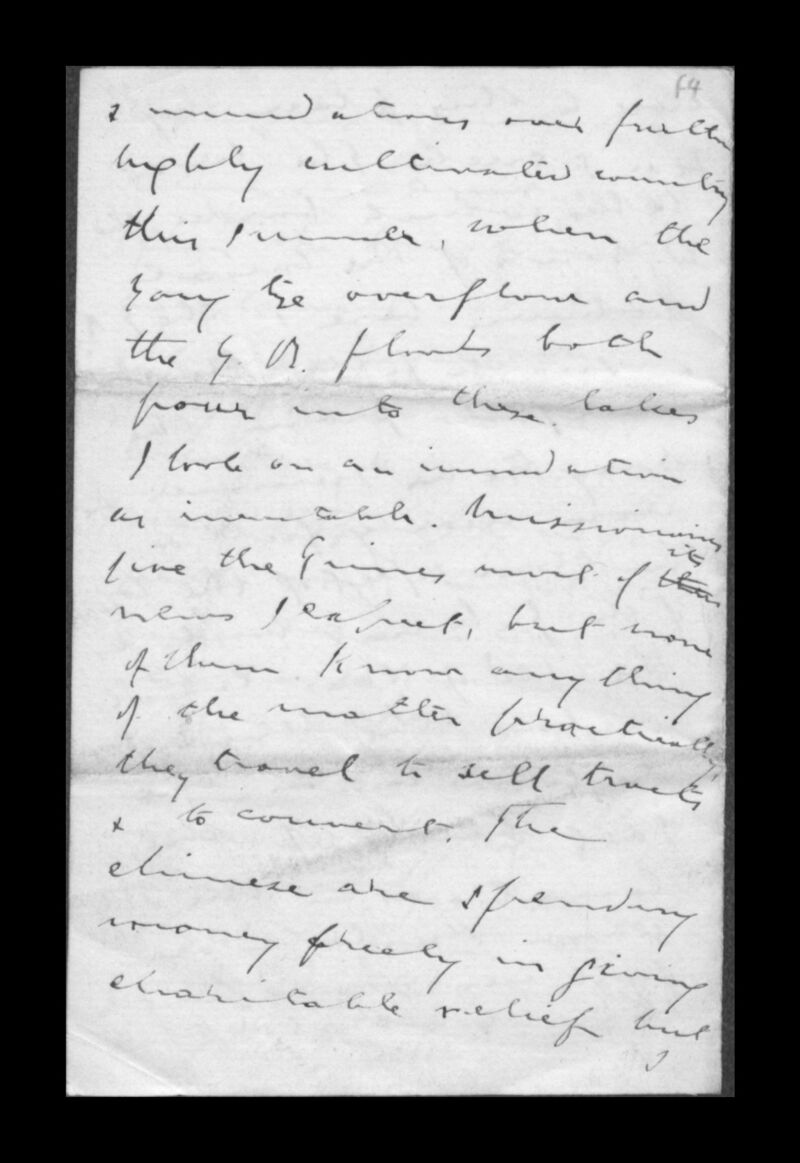 64
& inundations over further
highly cultivated country
this summer, when the
Yang tze overflows and
the Y. R. floods both
pour into these lakes
I look on an inundation
as inevitable. Missionaries
give the Times most of its
news I expect, but none
of them know anything
of the matter practically,
they travel to sell tracts
& to convert. The
chinese are spending
money freely in giving
charitable relief but